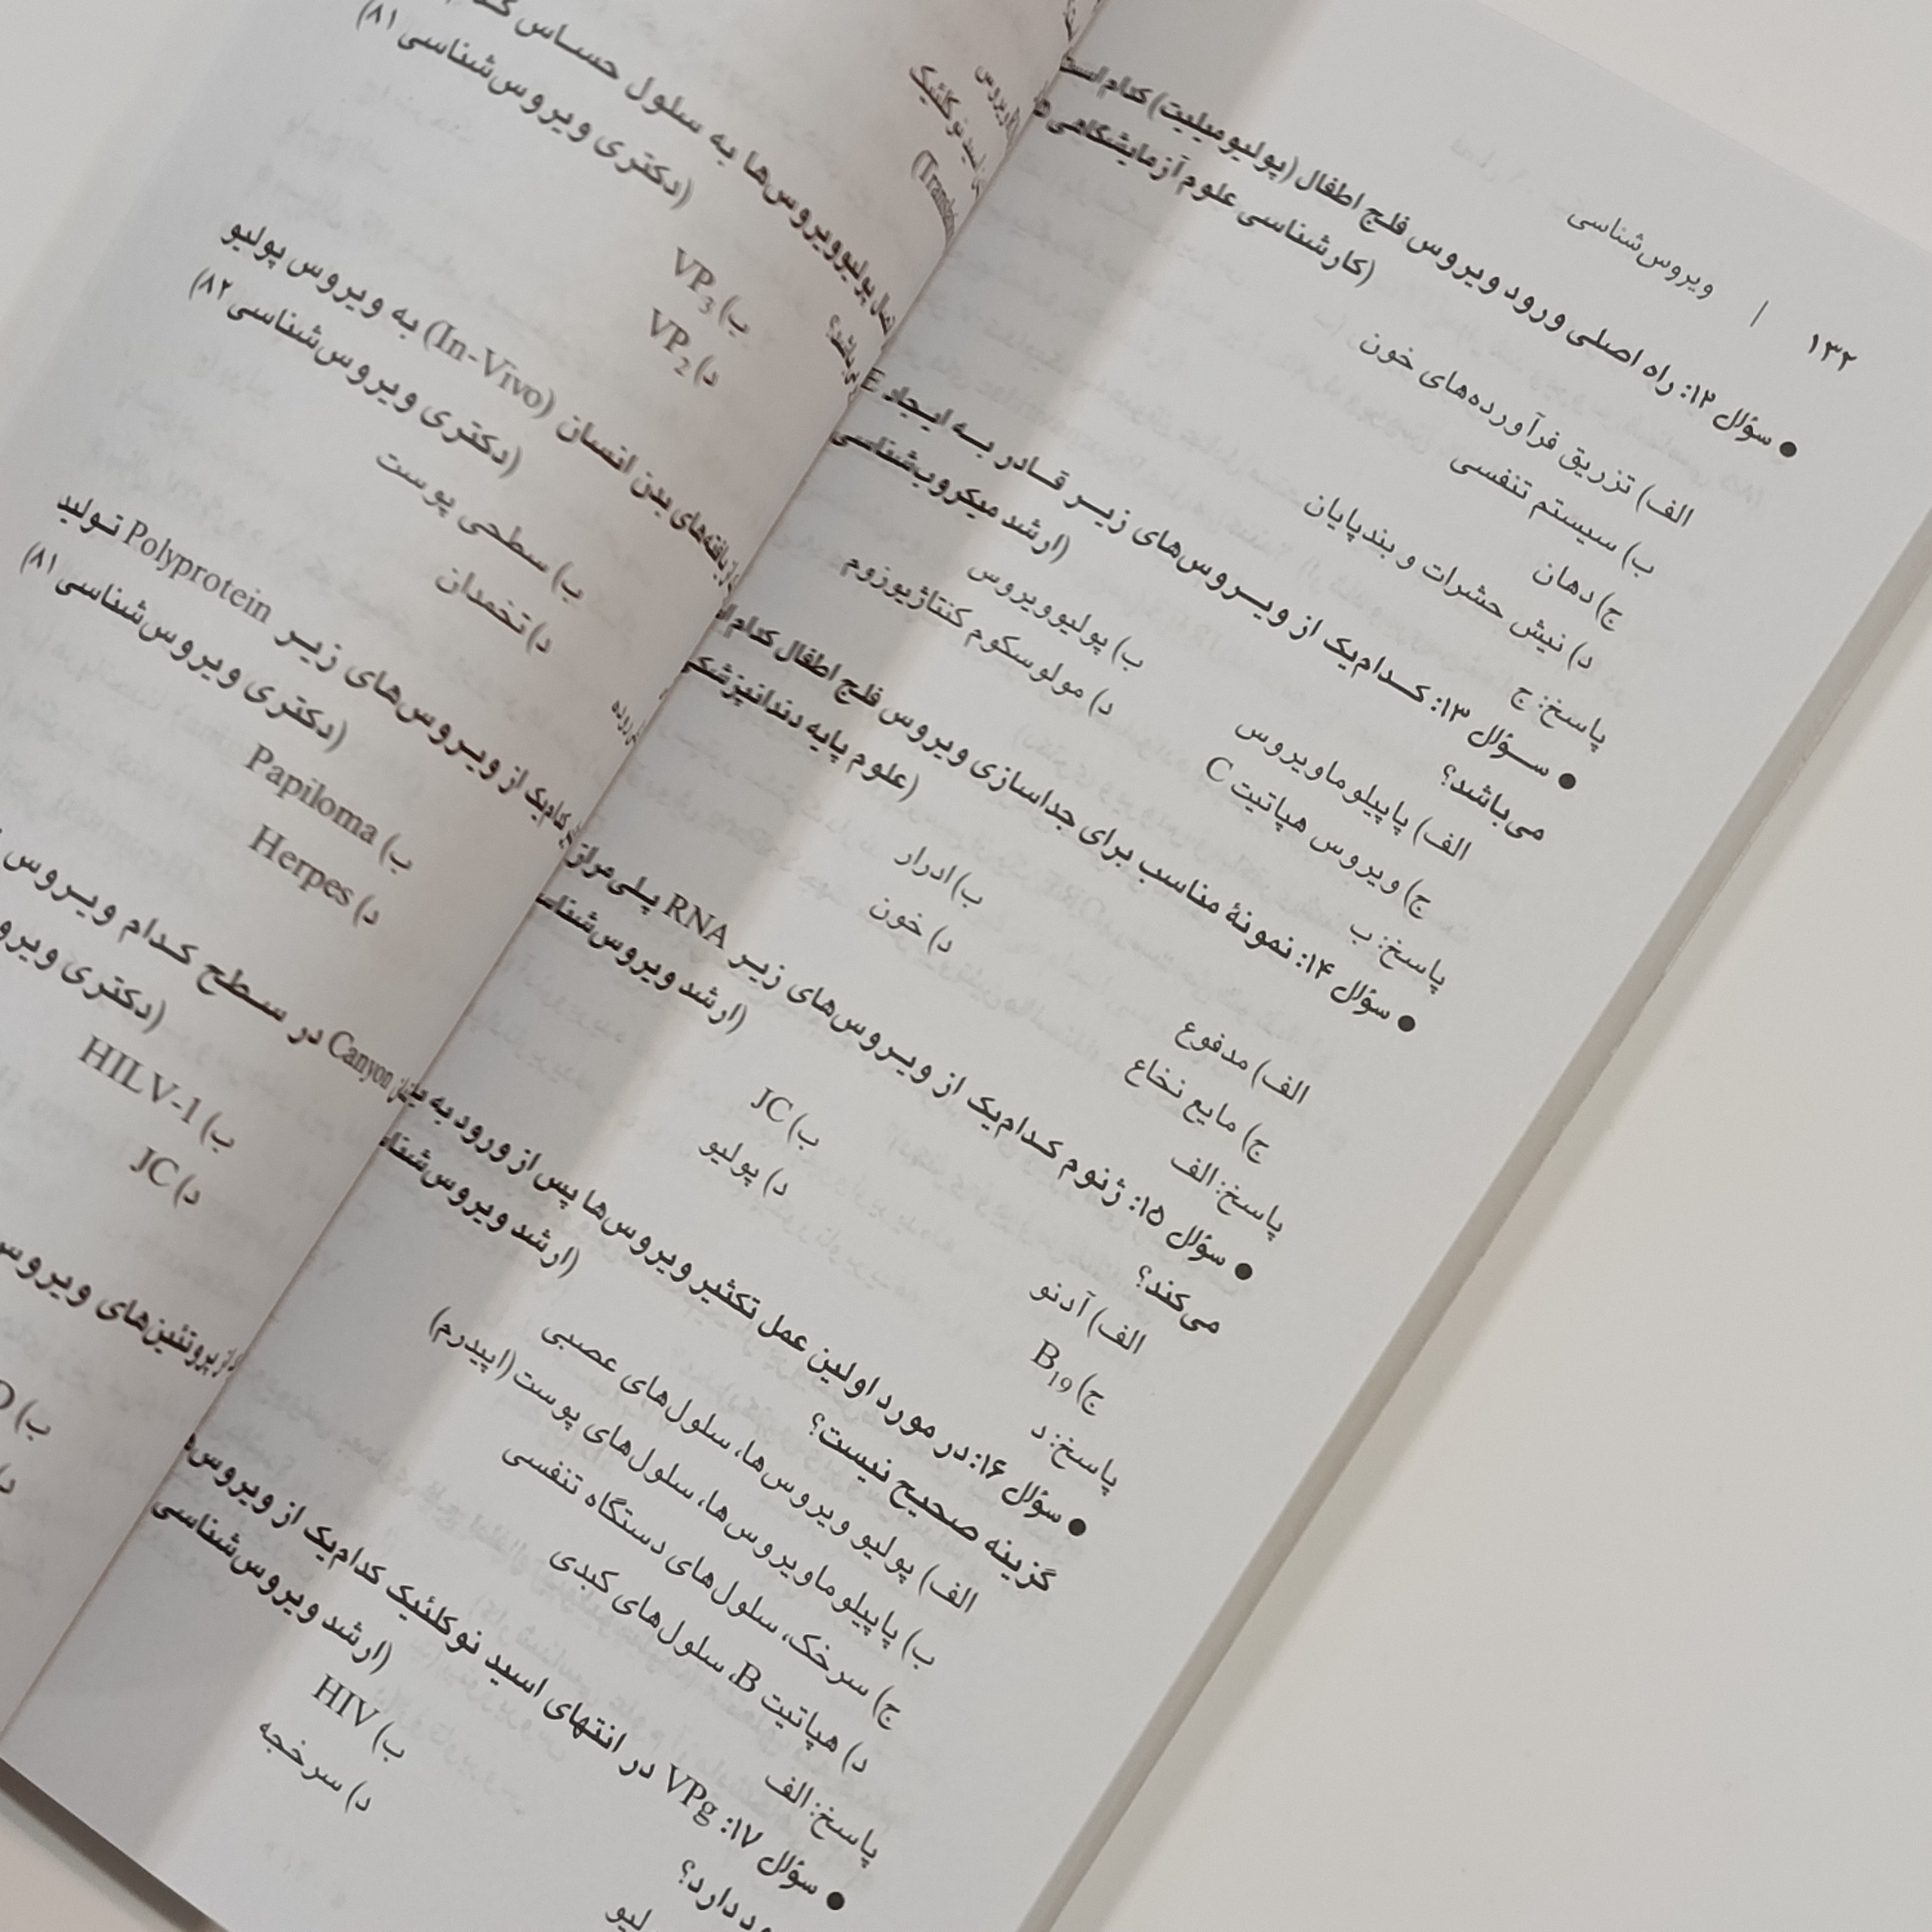 ۱۳۲ | ویروس‌شناسی
● سؤال ۱۲: راه اصلی ورود ویروس فلج اطفال (پولیومیلیت) کدام است
(کارشناسی علوم آزمایشگاهی
الف) تزریق فرآورده‌های خون
ب) سیستم تنفسی
ج) دهان
د) نیش حشرات و بندپایان
پاسخ: ج
● سؤال ۱۳: کدام‌یک از ویروس‌های زیر قادر به ایجاد
می‌باشد؟ (ارشد میکروب‌شناسی
الف) پاپیلوماویروس ب) پولیوویروس
ج) ویروس هپاتیت C د) مولوسکوم کنتاژیوزوم
پاسخ: ب
● سؤال ۱۴: نمونهٔ مناسب برای جداسازی ویروس فلج اطفال کدام
(علوم پایه دندانپزشکی
الف) مدفوع ب) ادرار
ج) مایع نخاع د) خون
پاسخ: الف
● سؤال ۱۵: ژنوم کدام‌یک از ویروس‌های زیر RNA پلی‌مراز
می‌کند؟ (ارشد ویروس‌شناسی
الف) آدنو ب) JC
ج) B19 د) پولیو
پاسخ: د
● سؤال ۱۶: در مورد اولین عمل تکثیر ویروس‌ها پس از ورود به
گزینه صحیح نیست؟ (ارشد ویروس‌شناسی
الف) پولیو ویروس‌ها، سلول‌های عصبی
ب) پاپیلوماویروس‌ها، سلول‌های پوست (اپیدرم)
ج) سرخک، سلول‌های دستگاه تنفسی
د) هپاتیت B، سلول‌های کبدی
پاسخ: الف
● سؤال ۱۷: VPg در انتهای اسید نوکلئیک کدام‌یک از ویروس
دارد؟ (ارشد ویروس‌شناسی
ب) HIV
د) سرخجه
پولیوویروس‌ها به سلول حساس
(دکتری ویروس‌شناسی ۸۱)
ب) VP3
د) VP2
بافته‌های بدن انسان (In-Vivo) به ویروس پولیو
(دکتری ویروس‌شناسی ۸۲)
ب) سطحی پوست
د) تخمدان
کدام‌یک از ویروس‌های زیر Polyprotein تولید
(دکتری ویروس‌شناسی ۸۱)
ب) Papiloma
د) Herpes
Canyon در سطح کدام ویروس
(دکتری
ب) HILV-1
د) JC
از پروتئین‌های ویروس
ب)
د)